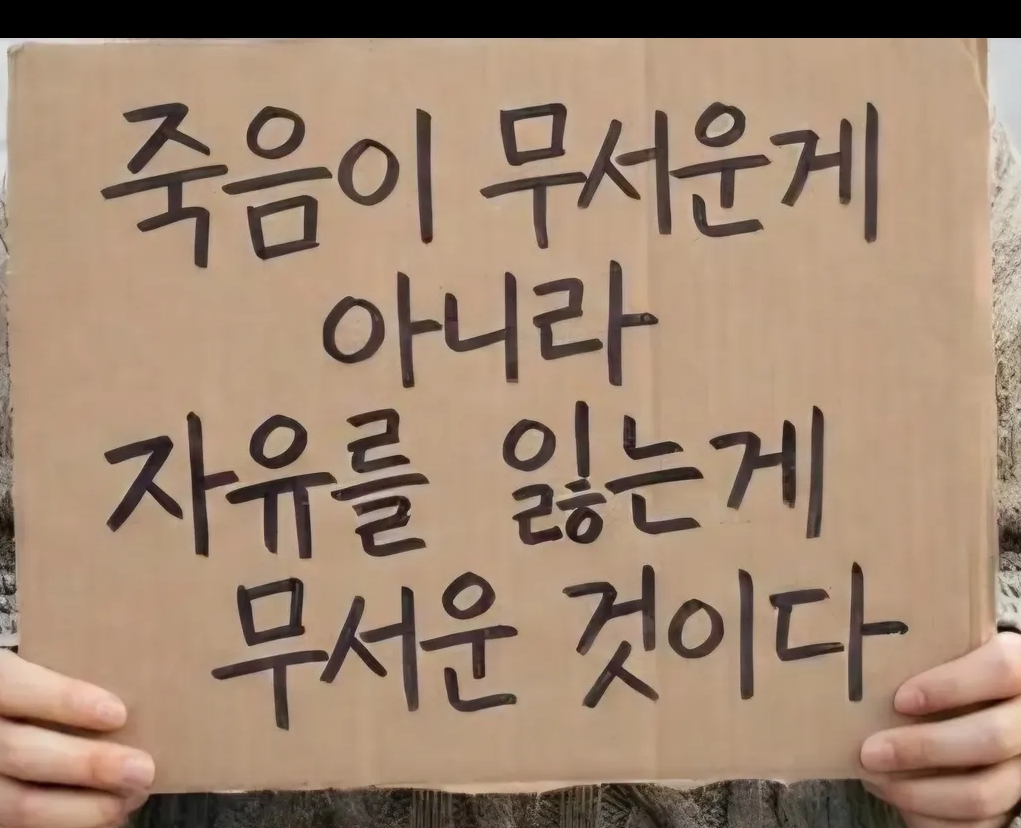 죽음이 무서운게
아니라
자유를 잃는게
무서운 것이다